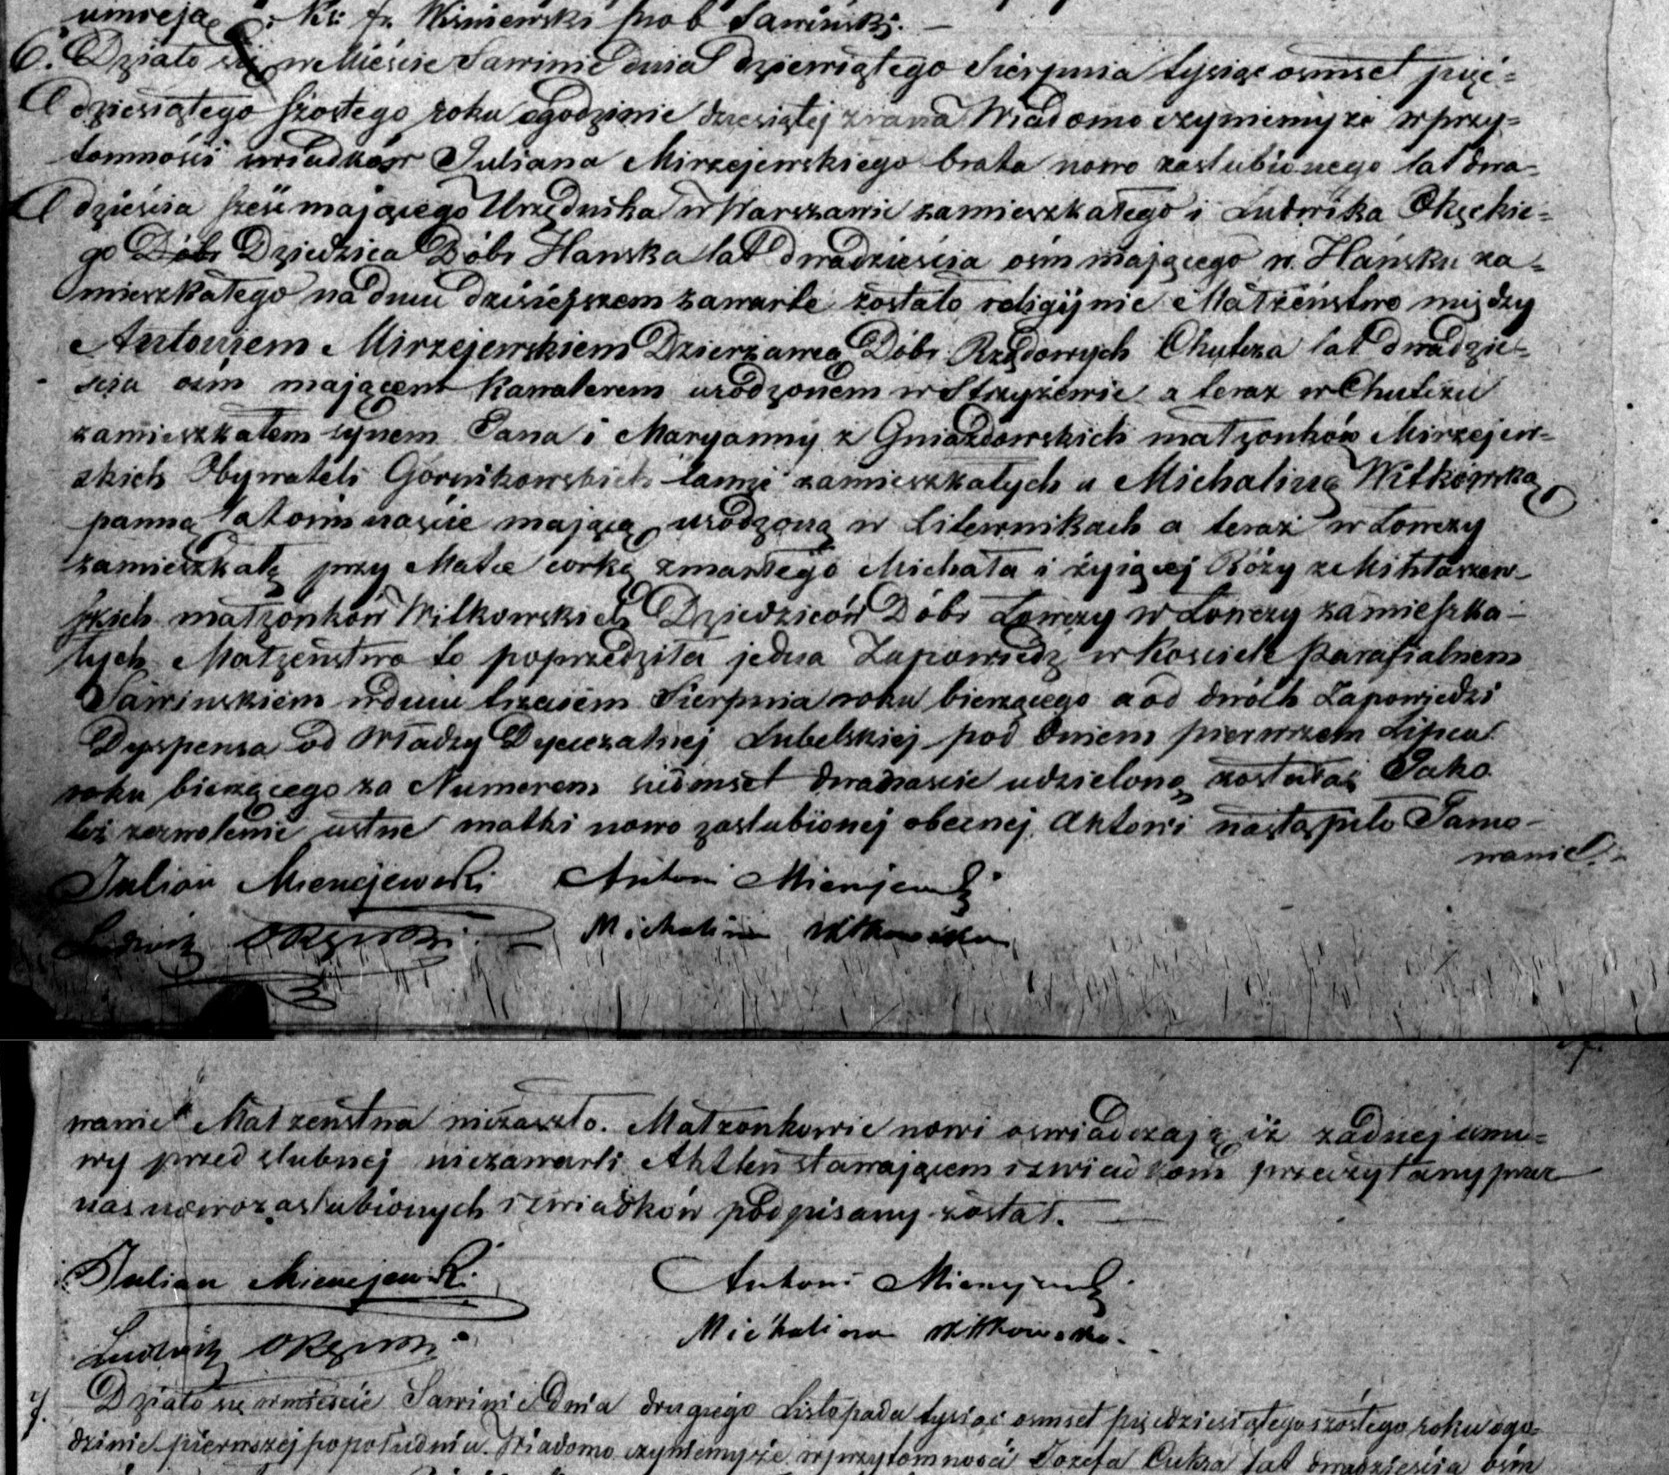 umreją. Ks: fr. Wiśniewski prob Sawiński. —
6. Działo się w Mieście Sawinie dnia dziewiątego Sierpnia tysiąc osmset pięć=
dziesiątego szostego roku ogodzinie dziesiątej zrana Wiadomo czyniemy że w przy=
tomności swiadków Juliana Mirzejewskiego brata nowo zaslubionego lat dwa-
dzieścia sześć mającego Urzędnika w Warszawie zamieszkałego i Ludwika Okęckie=
go Dóbr Dziedzica Dóbr Hanska lat dwadzieścia ośm mającego w Hańsku za=
mieszkałego na dniu dzisiejszem zawarte zostało religijnie Małżeństwo między
Antoniem Mirzejewskiem Dzierżawcą Dóbr Rządowych Chutcza lat dwadzie=
scia ośm mającem kawalerem urodzonem w Strzyżewie a teraz w Chutczu
zamieszkałem synem Jana i Maryanny z Gniazdowskich małżonków Mirzejew=
skich Obywateli Górnikowskich tamże zamieszkałych a Michaliną Witkowską
panną lat ośmnaście mającą urodzoną w Litewnikach a teraz w Łowczy
zamieszkałą przy Matce corką zmarłego Michała i żyiącej Róży z Mikłaszew-
skich małżonków Witkowskich Dziedziców Dóbr Łowczy w Łowczy zamieszka-
łych Małżeństwo to poprzedziła jedna Zapowiedź w Kosciele Parafialnem
Sawinskiem w dniu trzeciem Sierpnia roku bieżącego a od dwóch Zapowiedzi
Dyspensa od Władzy Dyecezalnej Lubelskiej pod dniem pierwszem Lipca
roku bieżącego za Numerem siedmset dwanascie udzieloną została Jako
też zezwolenie ustne matki nowo zaslubionej obecnej Aktowi nastąpiło Tamo-
wanie.
Julian Mierzejewski Antoni Mierzejewski
Ludwik Okęcki Michalina Witkowska
wanie Małżeństwa niezaszło. Małżonkowie nowi oswiadczają iż żadnej umo=
wy przed slubnej niezawarli Akt ten stawającem i swiadkom przeczytany przez
nas nowozaslubionych i swiadków podpisany został. —
Julian Mierzejewski Antoni Mierzejewski
Ludwik Okęcki Michalina Witkowska.
7. Działo się w mieście Sawinie Dnia drugiego Listopada tysiąc osmset pięćdziesiątego szostego roku ogo=
dzinie pierwszej popołudniu. Wiadomo czyniemy że w przytomności Jozefa Cuksa lat dwadzieścia ośm